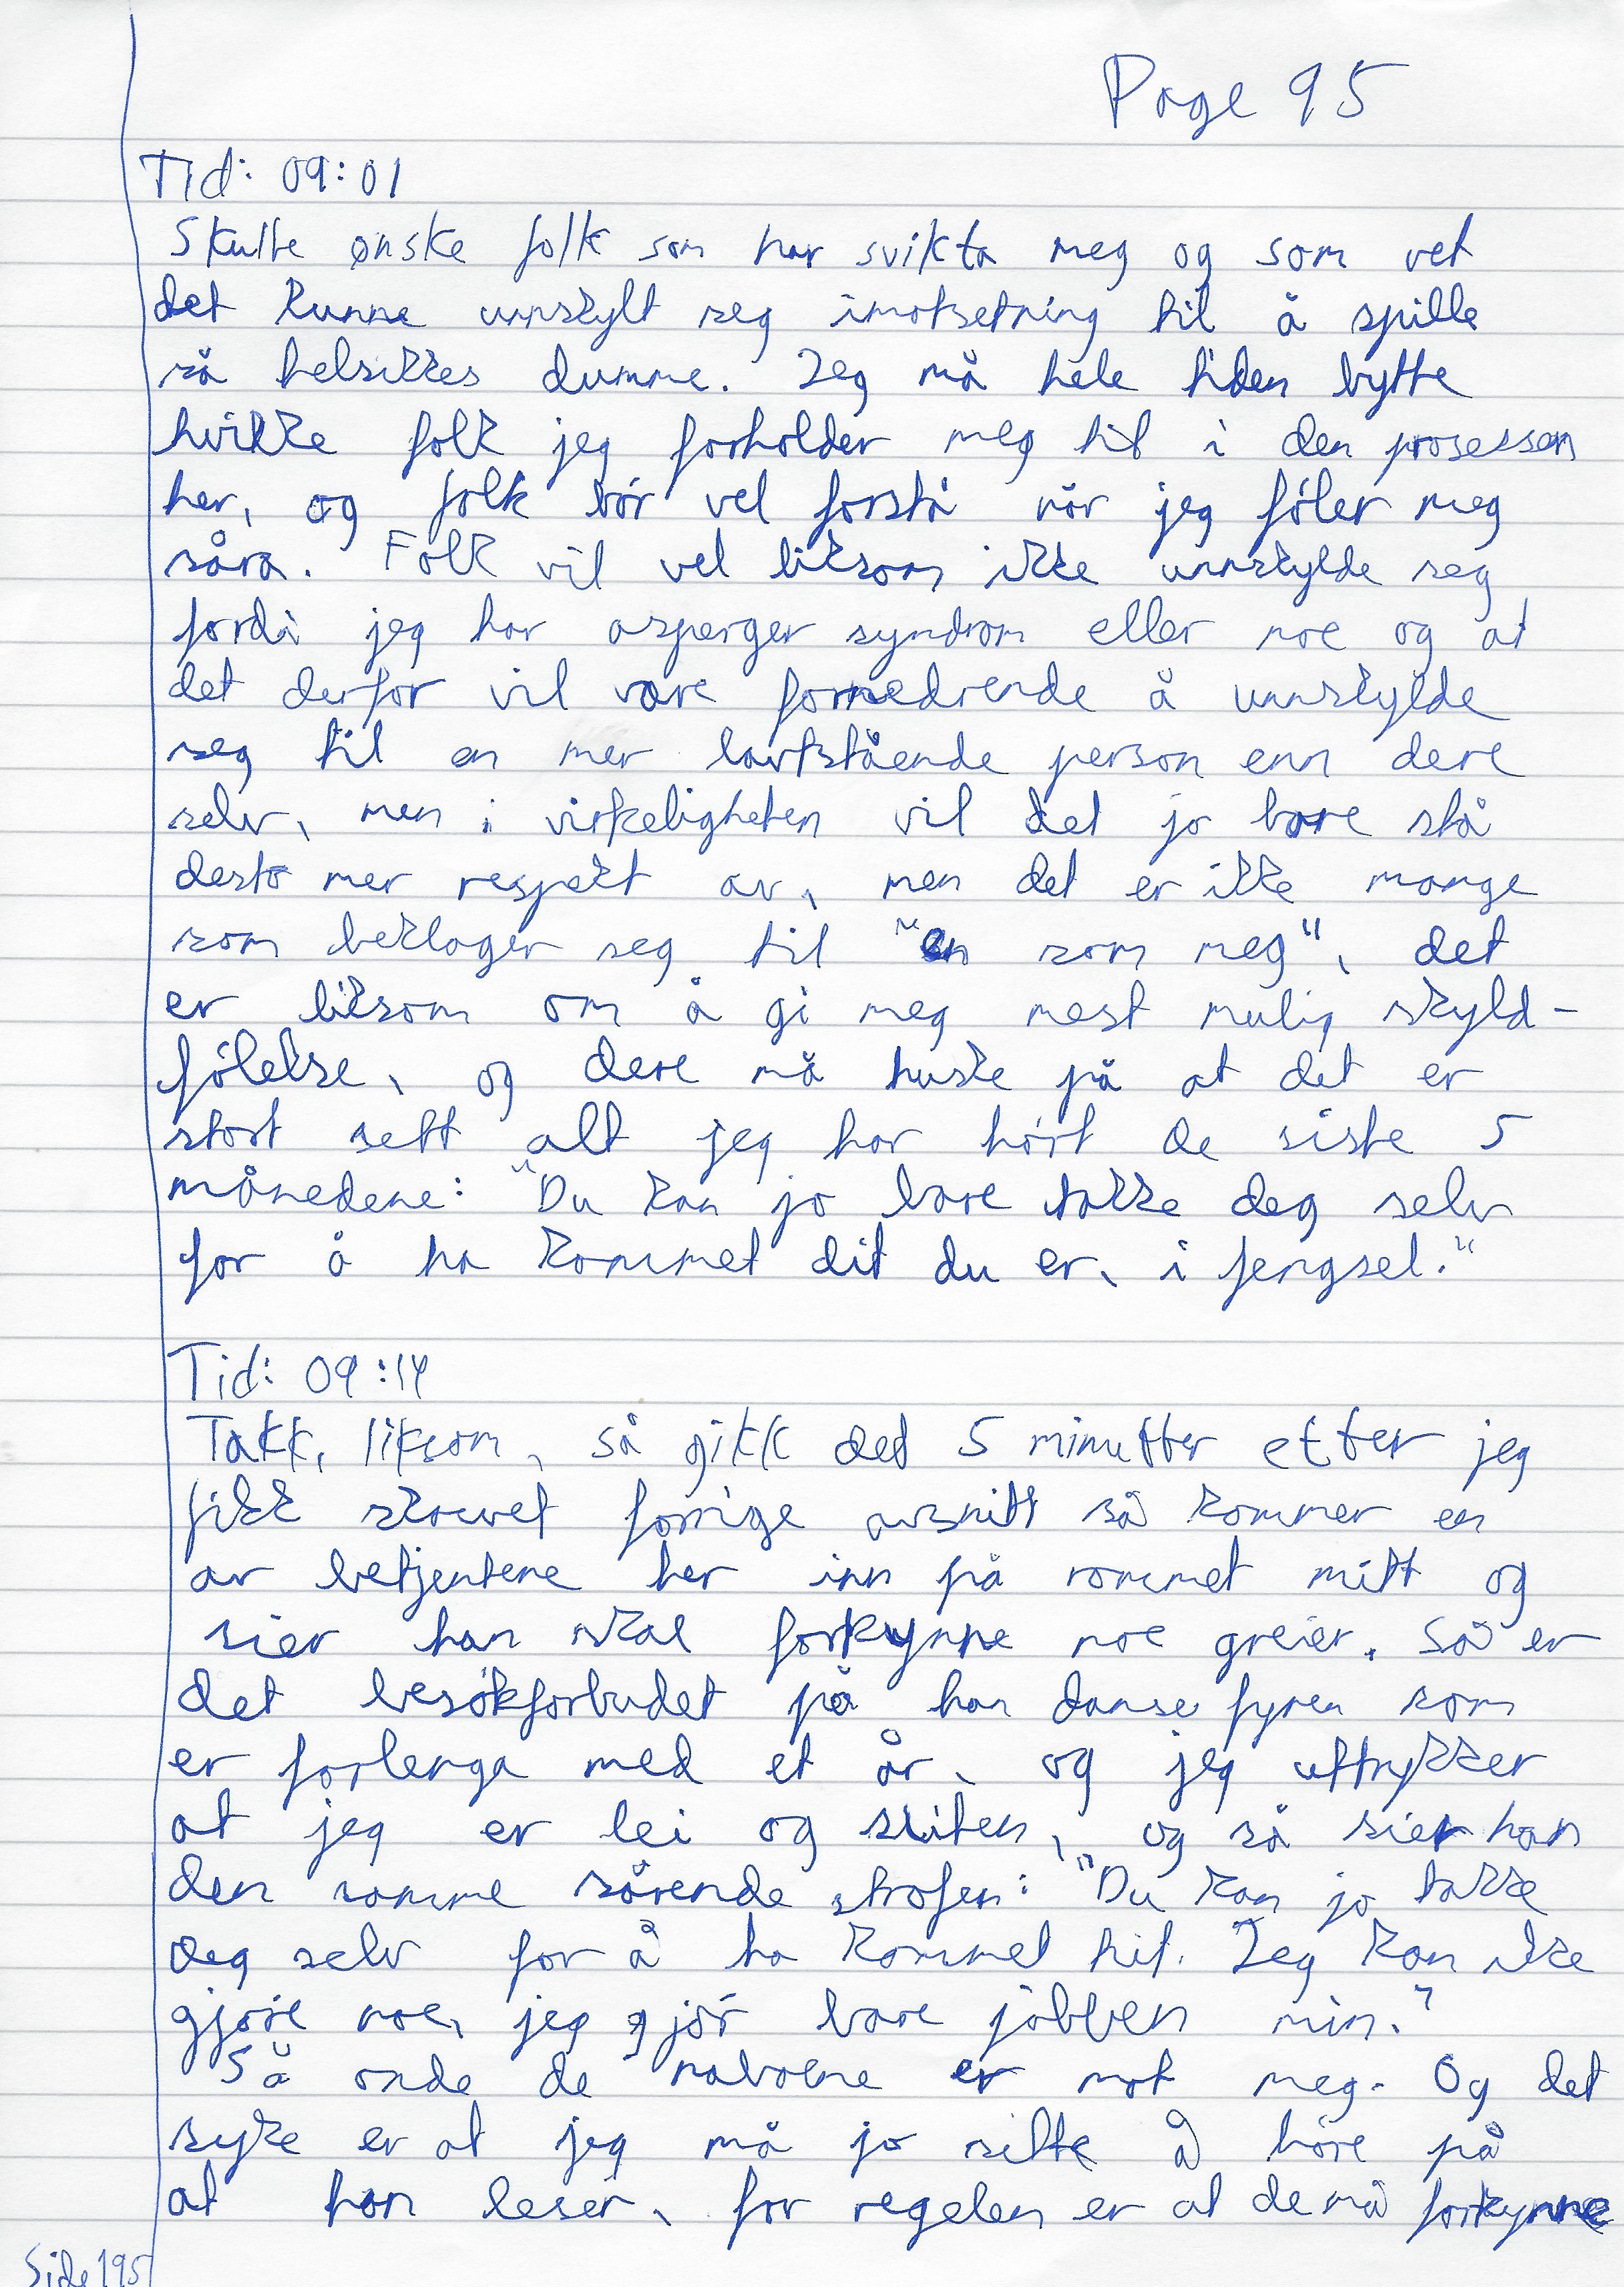 Page 95
Tid: 09:01
Skulle ønske folk som har svikta meg og som vet
det kunne unnskylt seg imotsetning til å spille
så helsikkes dumme. Jeg må hele tiden bytte
hvikke folk jeg forholder meg til i den prosessen
her, og folk bør vel forstå når jeg føler meg
såra. Folk vil vel liksom ikke unnskylde seg
fordi jeg har asperger syndrom eller noe og at
det derfor vil være fornedrende å unnskylde
seg til en mer lavtstående person enn dere
selv, men i virkeligheten vil det jo bare stå
desto mer respekt av, men det er ikke mange
som beklager seg til "en som meg", det
er liksom om å gi meg mest mulig skyld-
følelse, og dere må huske på at det er
stort sett alt jeg har hørt de siste 5
månedene: "Du kan jo bare takke deg selv
for å ha kommet dit du er, i fengsel."
Tid: 09:14
Takk, liksom, så gikk det 5 minutter etter jeg
fikk skrevet forrige avsnitt så kommer en
av betjentene her inn på rommet mitt og
sier han skal forkynne noe greier. Så er
det besøkforbudet på han danse fyren som
er forlenga med et år, og jeg uttrykker
at jeg er lei og sliten, og så sier han
den samme sårende strofen: "Du kan jo takke
deg selv for å ha kommet hit. Jeg kan ikke
gjøre noe, jeg gjør bare jobben min."
Så onde de er mot meg. Og det
syke er at jeg må jo sitte å høre på
at han leser, for regelen er at de må forkynne
Side 195